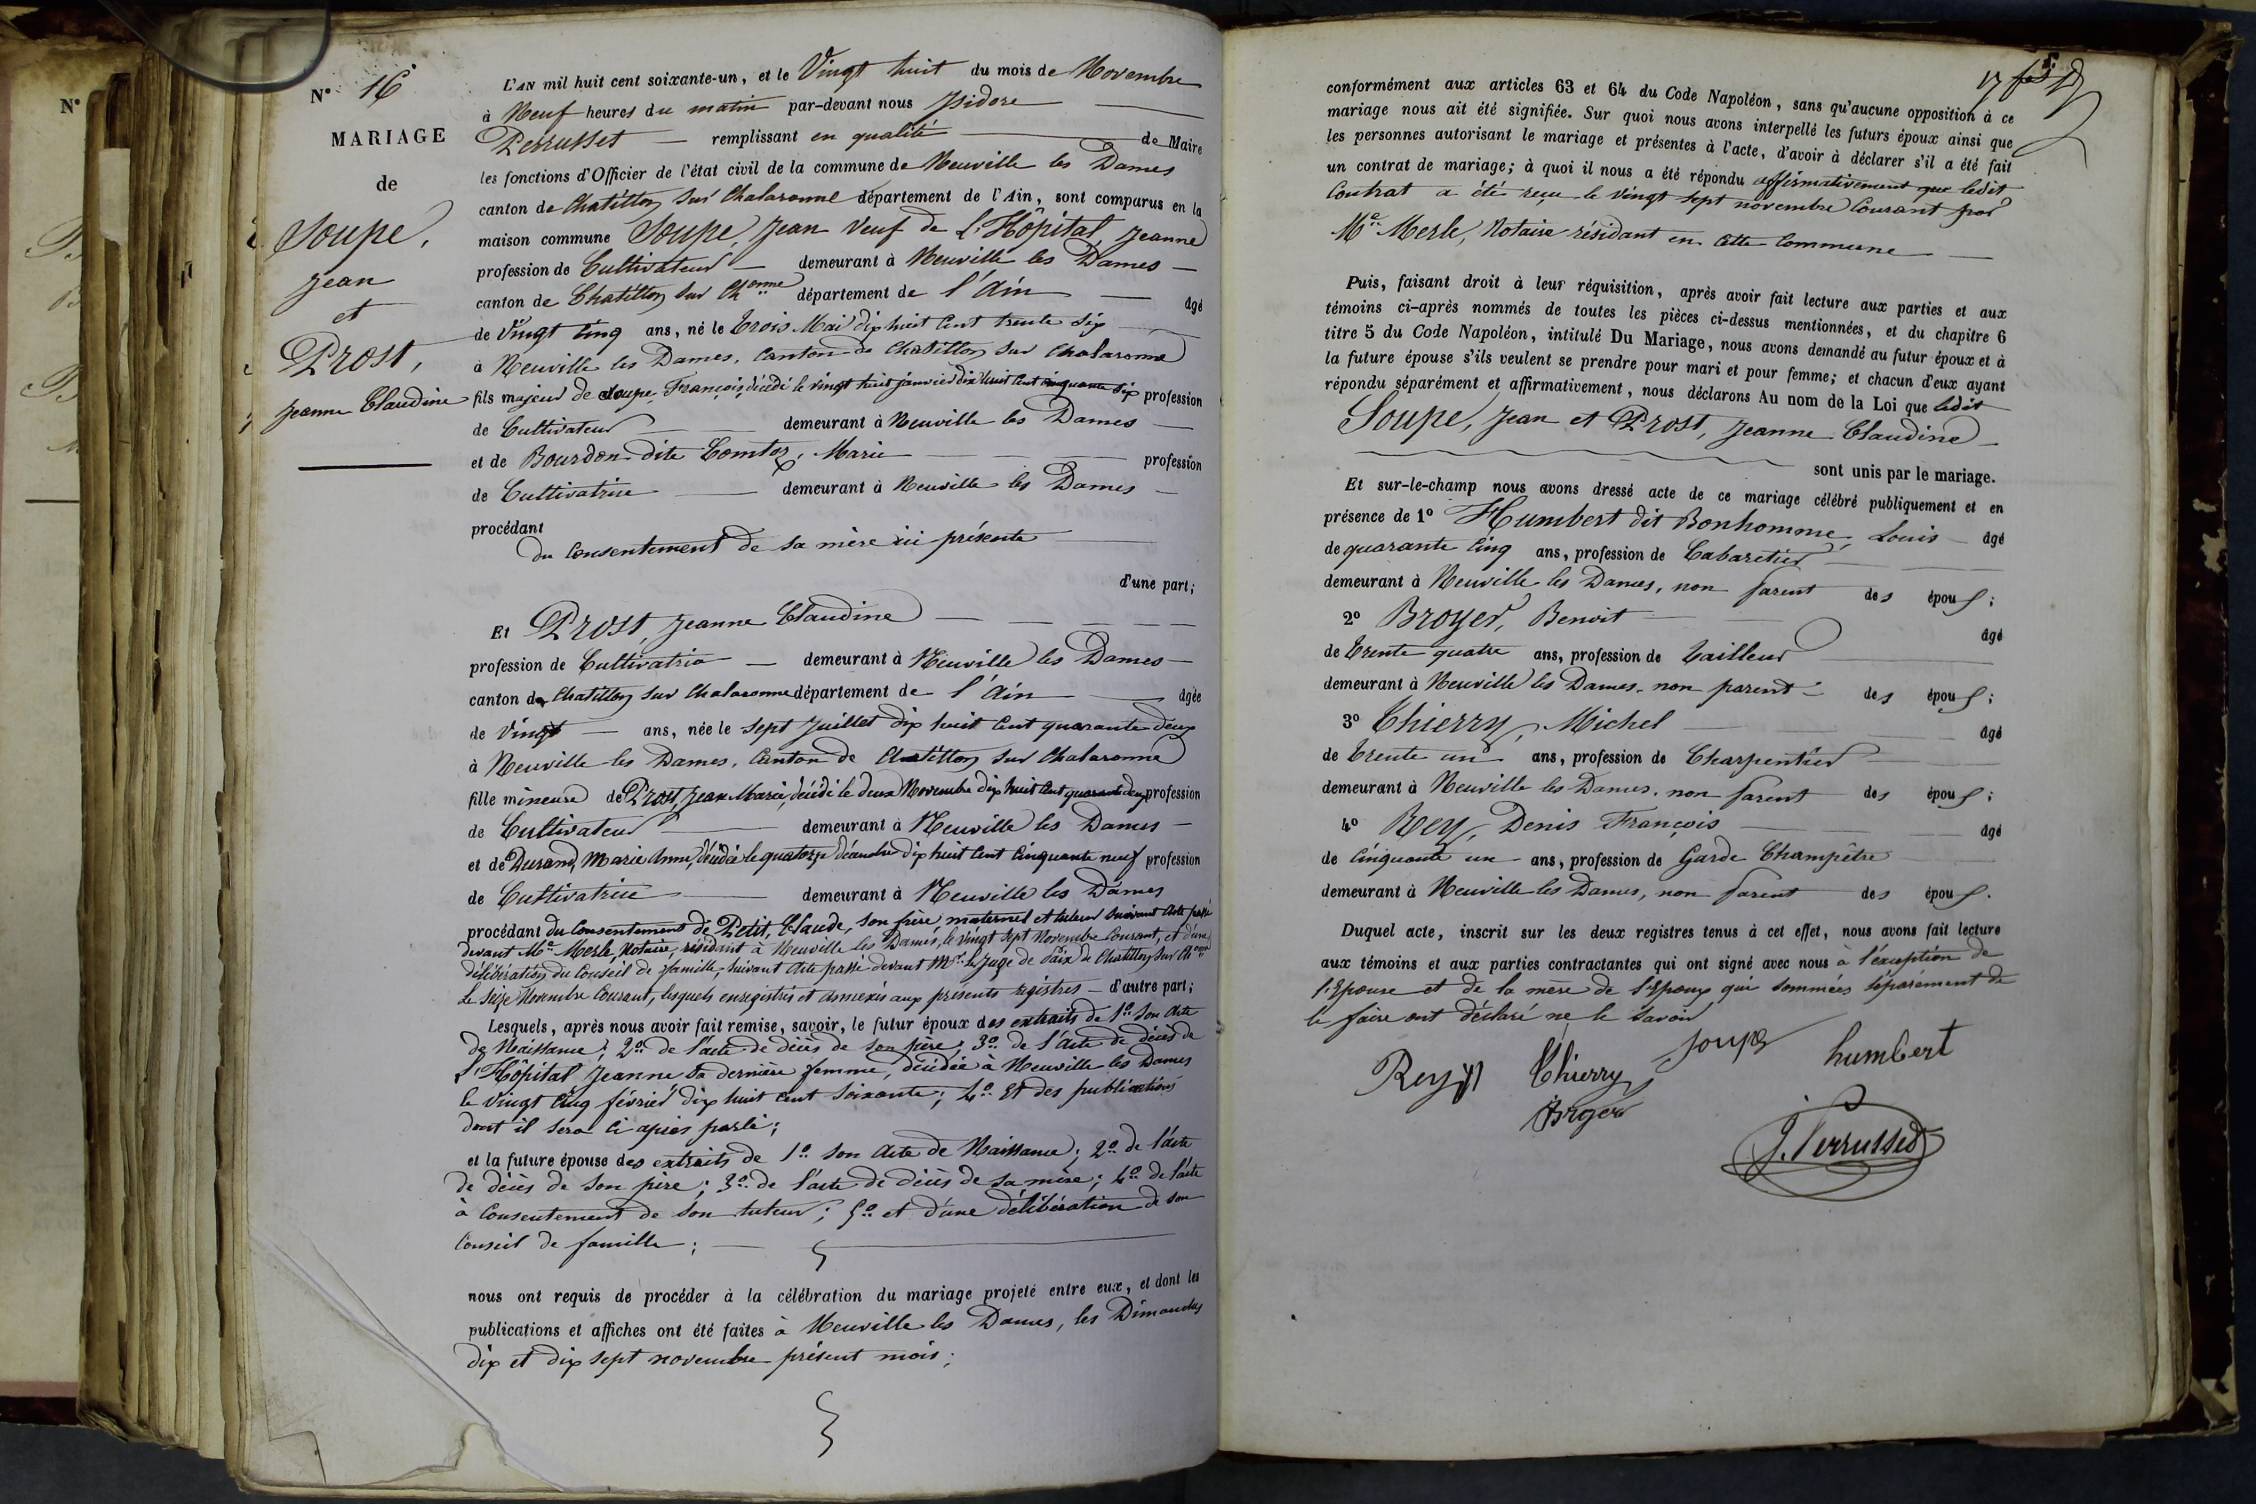 N°
N° 16
MARIAGE
de
Soupe,
Jean
et
Prost,
Jeanne Claudine
L'AN mil huit cent soixante-un, et le Vingt huit du mois de Novembre
à Neuf heures du matin par-devant nous Isidore
Perrusset remplissant en qualité de Maire
les fonctions d'Officier de l'état civil de la commune de Neuville les Dames
canton de Chatillon sur Chalaronne département de l'Ain, sont comparus en la
maison commune Soupe, Jean Veuf de L'Hôpital Jeanne
profession de Cultivateur demeurant à Neuville les Dames
canton de Chatillon sur Chonne département de l'Ain âgé
de Vingt cinq ans, né le trois Mai dix huit cent trente six
à Neuville les Dames, canton de Chatillon sur Chalaronne
fils majeur de Soupe, François, décédé le vingt huit janvier dix huit cent cinquante six profession
de Cultivateur demeurant à Neuville les Dames
et de Bourdon dite Comtoz, Marie profession
de Cultivatrice demeurant à Neuville les Dames
procédant
du consentement de sa mère ici présente
d'une part;
Et Prost, Jeanne Claudine
profession de Cultivatrice demeurant à Neuville les Dames
canton de Chatillon sur Chalaronne département de l'Ain âgée
de Vingt ans, née le sept Juillet dix huit cent quarante deux
à Neuville les Dames, Canton de Chatillon sur Chalaronne
fille mineure de Prost, Jean Marie, décédé le deux Novembre dix huit cent quarante deux profession
de Cultivateur demeurant à Neuville les Dames
et de Durand, Marie Anne, décédée le quatorze décembre dix huit cent cinquante neuf profession
de Cultivatrice demeurant à Neuville les Dames
procédant du consentement de Petit, Claude, son frère maternel et tuteur suivant acte passé
devant Me Merle, Notaire, résidant à Neuville les Dames, le vingt sept Novembre Courant, et d'une
délibération du Conseil de famille, suivant acte passé devant Mr le Juge de Paix de Chatillon sur Chonne
le seize Novembre Courant, lesquels enregistrés et annexés aux présents registres d'autre part;
Lesquels, après nous avoir fait remise, savoir, le futur époux des extraits de 1° son acte
de Naissance; 2° de l'acte de décès de son père; 3° de l'acte de décès de
L'Hôpital Jeanne sa dernière femme, décédée à Neuville les Dames
le vingt cinq février dix huit cent soixante; 4° Et des publications
dont il sera ci après parlé;
et la future épouse des extraits de 1° son acte de Naissance; 2° de l'acte
de décès de son père; 3° de l'acte de décès de sa mère; 4° de l'acte
à consentement de son tuteur; 5° et d'une délibération de son
conseil de famille;
nous ont requis de procéder à la célébration du mariage projeté entre eux, et dont les
publications et affiches ont été faites à Neuville les Dames, les Dimanches
dix et dix sept novembre présent mois;
17
conformément aux articles 63 et 64 du Code Napoléon, sans qu'aucune opposition à ce
mariage nous ait été signifiée. Sur quoi nous avons interpellé les futurs époux ainsi que
les personnes autorisant le mariage et présentes à l'acte, d'avoir à déclarer s'il a été fait
un contrat de mariage; à quoi il nous a été répondu affirmativement que ledit
Contrat a été reçu le vingt sept novembre Courant par
Me Merle, Notaire résidant en cette Commune
Puis, faisant droit à leur réquisition, après avoir fait lecture aux parties et aux
témoins ci-après nommés de toutes les pièces ci-dessus mentionnées, et du chapitre 6
titre 5 du Code Napoléon, intitulé Du Mariage, nous avons demandé au futur époux et à
la future épouse s'ils veulent se prendre pour mari et pour femme; et chacun d'eux ayant
répondu séparément et affirmativement, nous déclarons Au nom de la Loi que ledit
Soupe, Jean et Prost, Jeanne Claudine
sont unis par le mariage.
Et sur-le-champ nous avons dressé acte de ce mariage célébré publiquement et en
présence de 1° Humbert dit Bonhomme, Louis âgé
de quarante cinq ans, profession de Cabaretier
demeurant à Neuville les Dames, non parent des époux;
2° Broyer, Benoit
âgé
de trente quatre ans, profession de Tailleur
demeurant à Neuville les Dames, non parent des époux;
3° Thierry, Michel âgé
de trente un ans, profession de Charpentier
demeurant à Neuville les Dames, non parent des époux;
4° Rey, Denis François âgé
de cinquante un ans, profession de Garde Champêtre
demeurant à Neuville les Dames, non parent des époux.
Duquel acte, inscrit sur les deux registres tenus à cet effet, nous avons fait lecture
aux témoins et aux parties contractantes qui ont signé avec nous à l'exception de
l'Epouse et de la mère de l'Epoux qui sommées séparément de
le faire ont déclaré ne le savoir
Rey Thierry Soupe humbert
Broyer
J. Perrusset